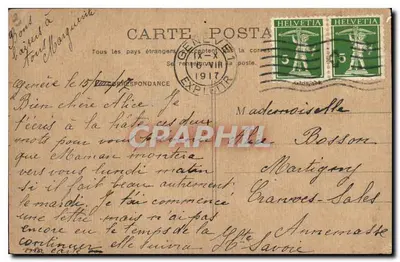 CARTE POSTALE
Bons
à
tous
Marguerite
Tous les pays étrangers
GENÈVE 1
IX-X
16 VIII
1917
EXP. LETTR.
HELVETIA
5
HELVETIA
5
CORRESPONDANCE
Genève le 15/
Bien chère Alice. Je
t'écris à la hâte ces deux
mots pour vous
que Maman montera
vers vous lundi matin
si il fait beau autrement
le mardi. Je t'ai commencé
une lettre mais n'ai pas
encore eu le temps de la
continuer elle suivra
Mademoiselle
Alice Bosson
Martigny
Cranves-Sales
Annemasse
Hte Savoie
CPArama.com